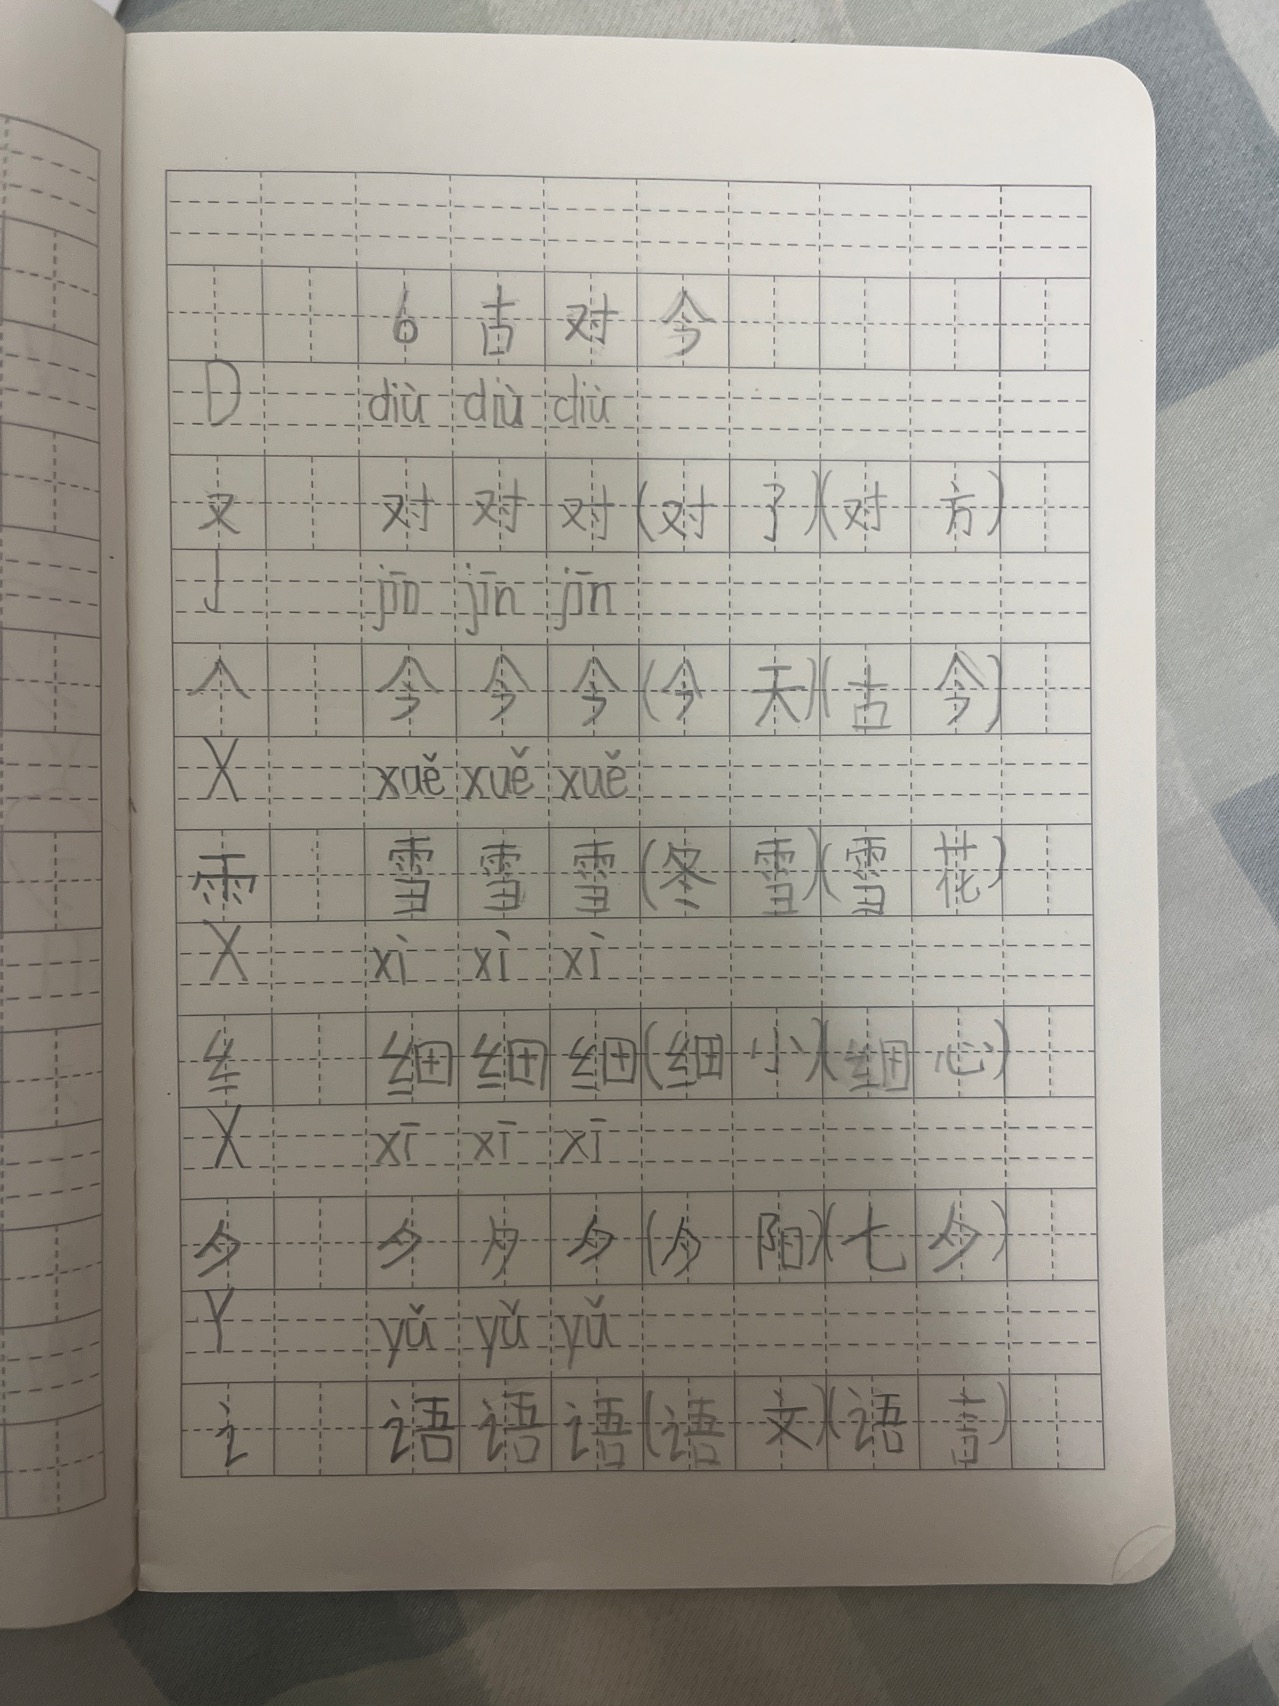 6古对今
D diù diù diù
又 对对对(对了)(对方)
J jīn jīn jīn
人 今今今(今天)(古今)
X xuě xuě xuě
雨 雪雪雪(冬雪)(雪花)
X xì xì xì
纟 细细细(细小)(细心)
X xī xī xī
夕 夕夕夕(夕阳)(七夕)
Y yǔ yǔ yǔ
讠 语语语(语文)(语言)